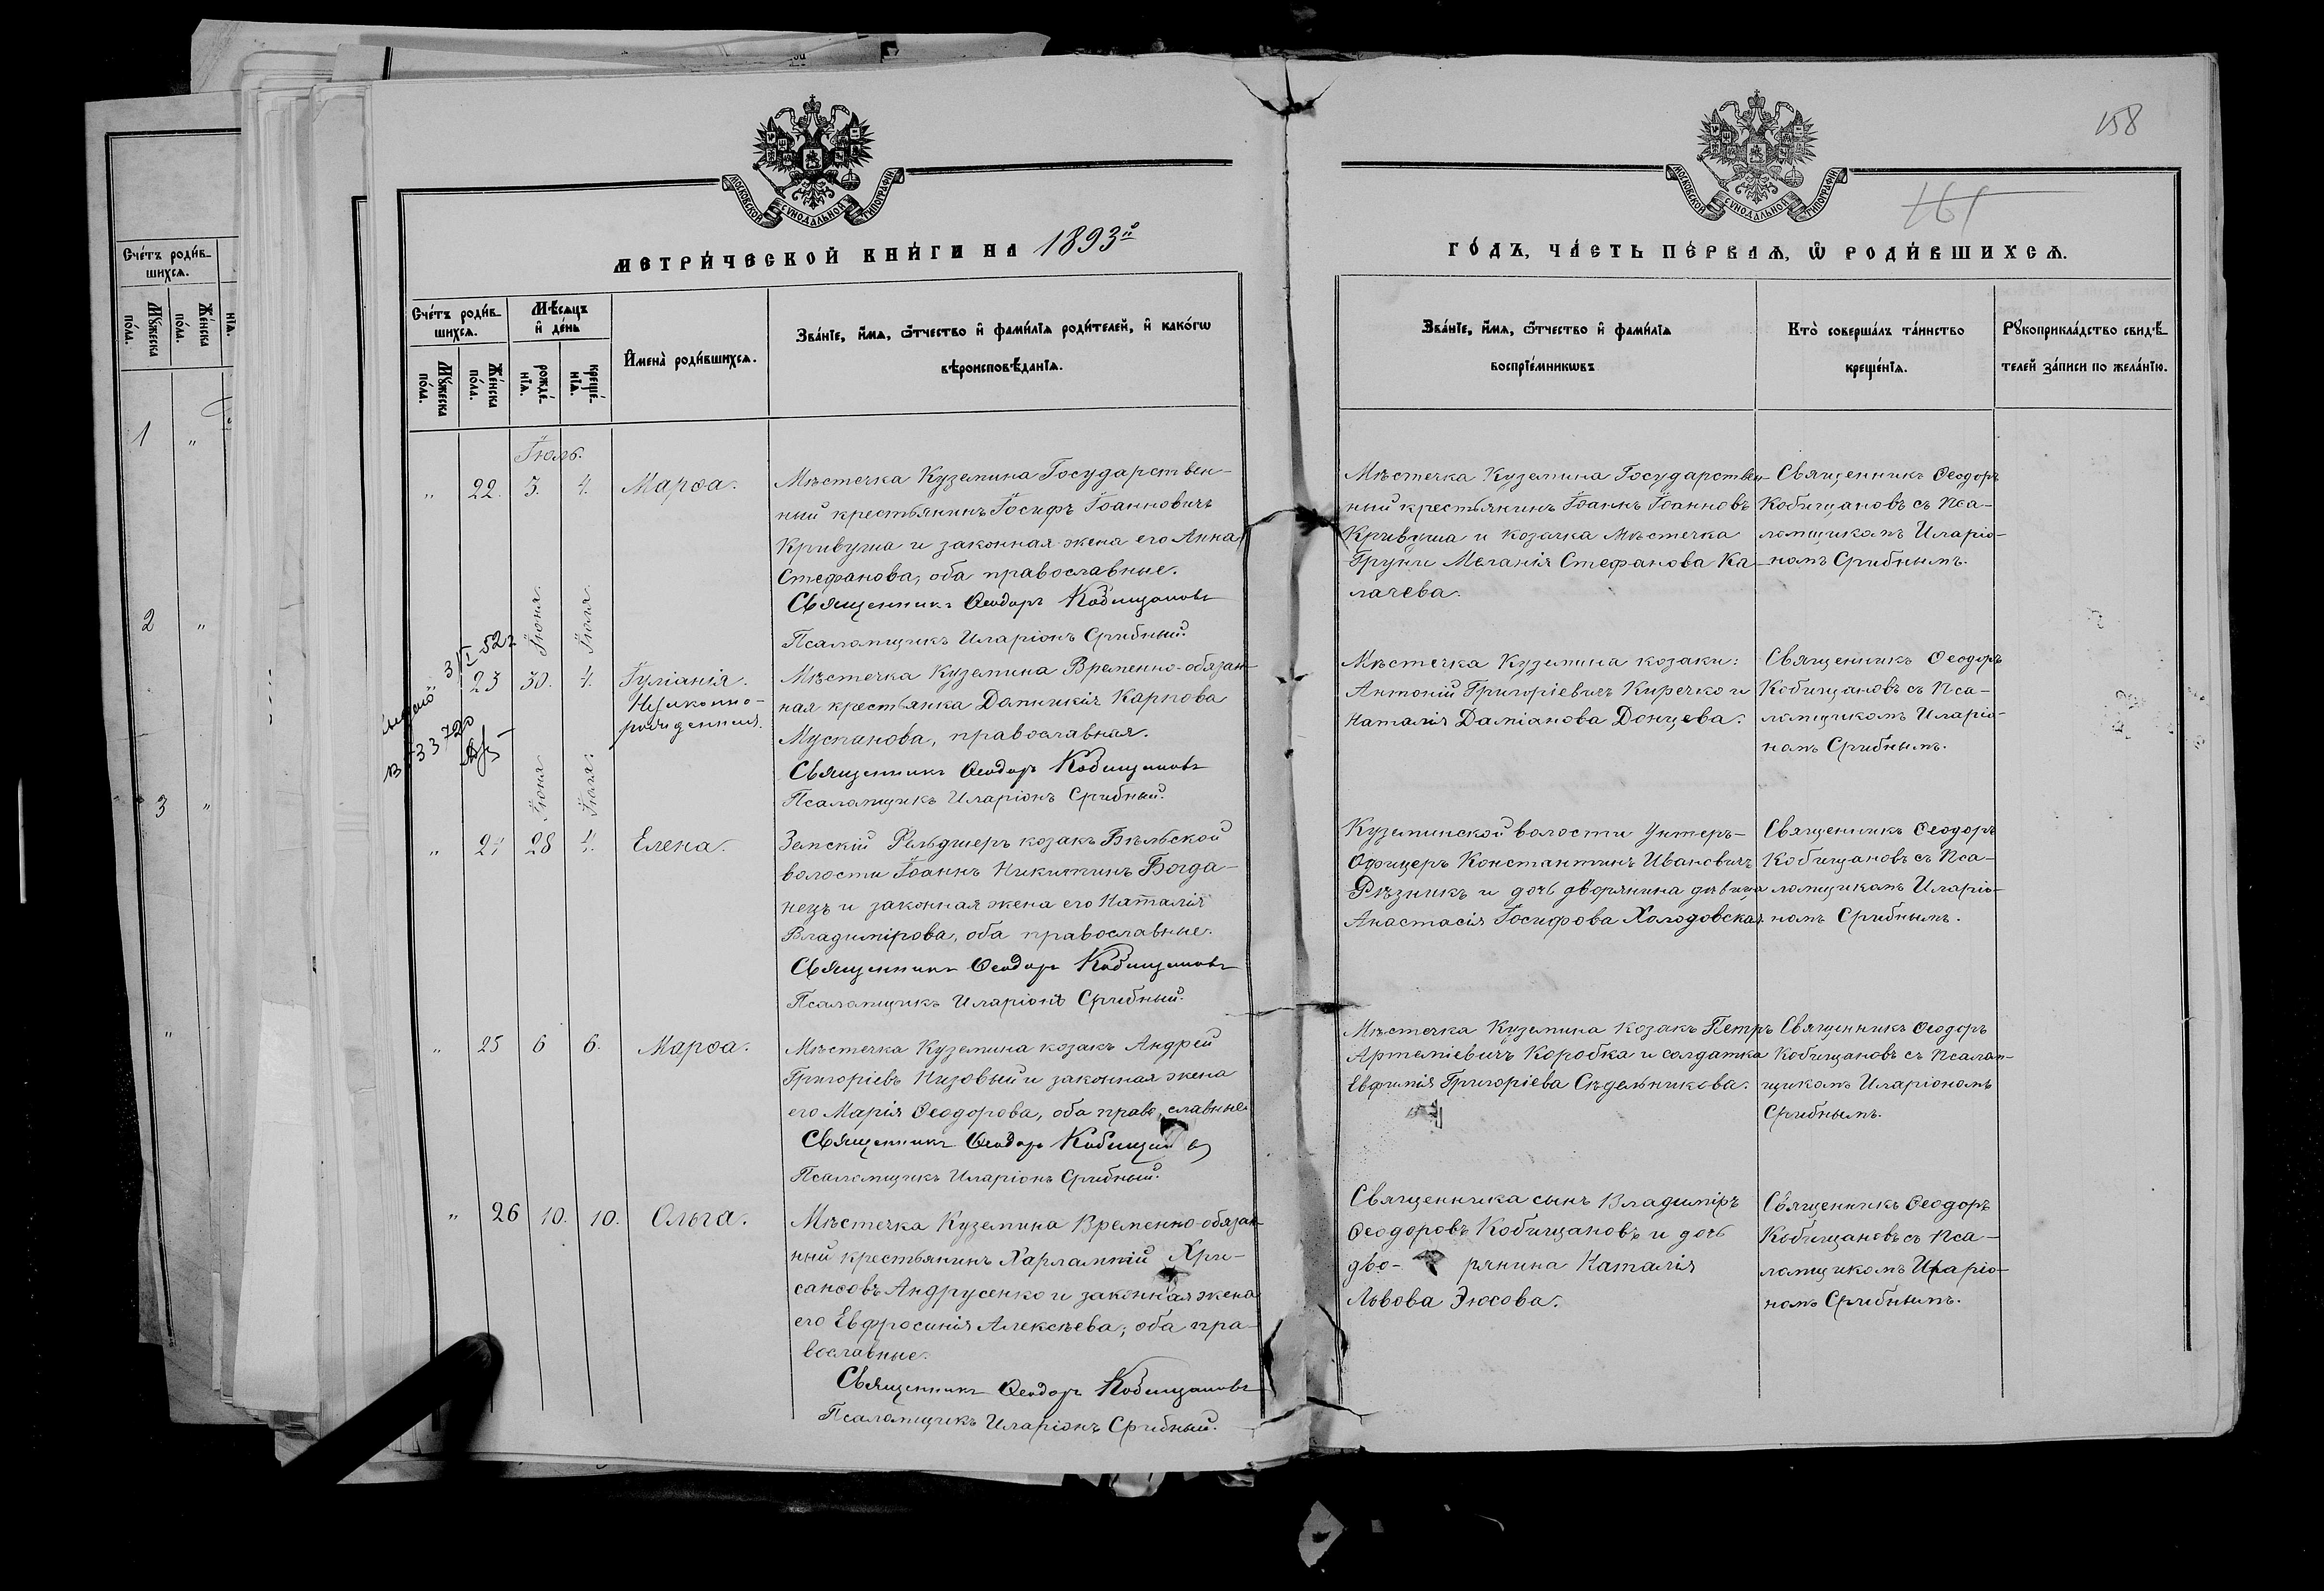 158
161
МОСКОВСКОЙ СУНОДАЛЬНОЙ ТИПОГРАФІИ
МОСКОВСКОЙ СУНОДАЛЬНОЙ ТИПОГРАФІИ
МЕТРИ́ЧЕСКОЙ КНИ́ГИ НА 1893й
ГО́ДЪ, ЧА́СТЬ ПЕ́РВАѦ, Ѽ РОДИ́ВШИХСѦ.
Сче́тъ роди́в-
шихсѧ.
Мꙋ́жеска
по́ла.
Же́нска
по́ла.
Сче́тъ роди́в-
шихсѧ.
Мꙋ́жеска
по́ла.
Же́нска
по́ла.
Мѣ́сѧцъ
и҆ де́нь
рожде́-
нїѧ.
креще́-
нїѧ.
И҆мена̀ роди́вшихсѧ.
Зва́нїе, и҆́мѧ, ѻ҆́тчество и҆ фами́лїѧ роди́телей, и҆ како́гѡ
вѣроисповѣ́данїѧ.
Зва́нїе, и҆́мѧ, ѻ҆́тчество и҆ фами́лїѧ
воспрїе́мникѡвъ
Кто̀ соверша́лъ та́инство
креще́нїѧ.
Рꙋкоприкла́дство свидѣ́-
телей за́писи по жела́нїю.
1 "
2 "
3 "
"
Іюль.
" 22. 3. 4. Марѳа.
Мѣстечка Куземина Государствен-
ный крестьянинъ Іосифъ Іоанновичъ
Кривуша и законная жена его Анна
Стефанова, оба православные.
Священникъ Ѳеодоръ Кобищановъ
Псаломщикъ Иларіонъ Срибный.
Мѣстечка Куземина Государствен-
ный крестьянинъ Іоаннъ Іоанновъ
Кривуша и козачка мѣстечка
Груни Меланія Стефанова Ка-
лачева.
Священникъ Ѳеодоръ
Кобищановъ съ Пса-
ломщикомъ Иларіо-
номъ Срибнымъ.
Іюня. Іюля.
23 30. 4. Іуліанія.
Незаконно-
рожденная.
Мѣстечка Куземина Временно-обязан-
ная крестьянка Домникія Карпова
Мусканова, православная.
Священникъ Ѳеодоръ Кобищановъ
Псаломщикъ Иларіонъ Срибный.
Мѣстечка Куземина козаки:
Антоній Григоріевичъ Киречко и
Наталія Даміанова Донцева.
Священникъ Ѳеодоръ
Кобищановъ съ Пса-
ломщикомъ Иларіо-
номъ Срибнымъ.
Іюня. Іюля.
" 24 28 4. Елена.
Земскій Фельдшеръ козакъ Бѣльской
волости Іоаннъ Никитинъ Богда-
нецъ и законная жена его Наталія
Владимірова, оба православные.
Священникъ Ѳеодоръ Кобищановъ
Псаломщикъ Иларіонъ Срибный.
Куземинской волости Унтеръ-
Офицеръ Константинъ Ивановичъ
Рѣзникъ и дочь дворянина дѣвица
Анастасія Іосифова Холодовская
Священникъ Ѳеодоръ
Кобищановъ съ Пса-
ломщикомъ Иларіо-
номъ Срибнымъ.
" 25 6 6. Марѳа.
Мѣстечка Куземина козакъ Андрей
Григоріевъ Низовый и законная жена
его Марія Ѳеодорова, оба православные
Священникъ Ѳеодоръ Кобищановъ
Псаломщикъ Иларіонъ Срибный.
Мѣстечка Куземина козакъ Петръ
Артеміевичъ Коробка и солдатка
Евфимія Григоріева Сѣдельникова.
Священникъ Ѳеодоръ
Кобищановъ съ Псалом-
щикомъ Иларіономъ
Срибнымъ.
" 26 10. 10. Ольга.
Мѣстечка Куземина Временно-обязан-
ный крестьянинъ Харлампій Хри-
сансовъ Андрусенко и законная жена
его Евфросинія Алексѣева, оба пра-
вославные.
Священникъ Ѳеодоръ Кобищановъ
Псаломщикъ Иларіонъ Срибный.
Священника сынъ Владиміръ
Ѳеодоровъ Кобищановъ и дочь
дво- рянина Наталія
Львова Эюсова.
Священникъ Ѳеодоръ
Кобищановъ съ Пса-
ломщикомъ Иларіо-
номъ Срибнымъ.